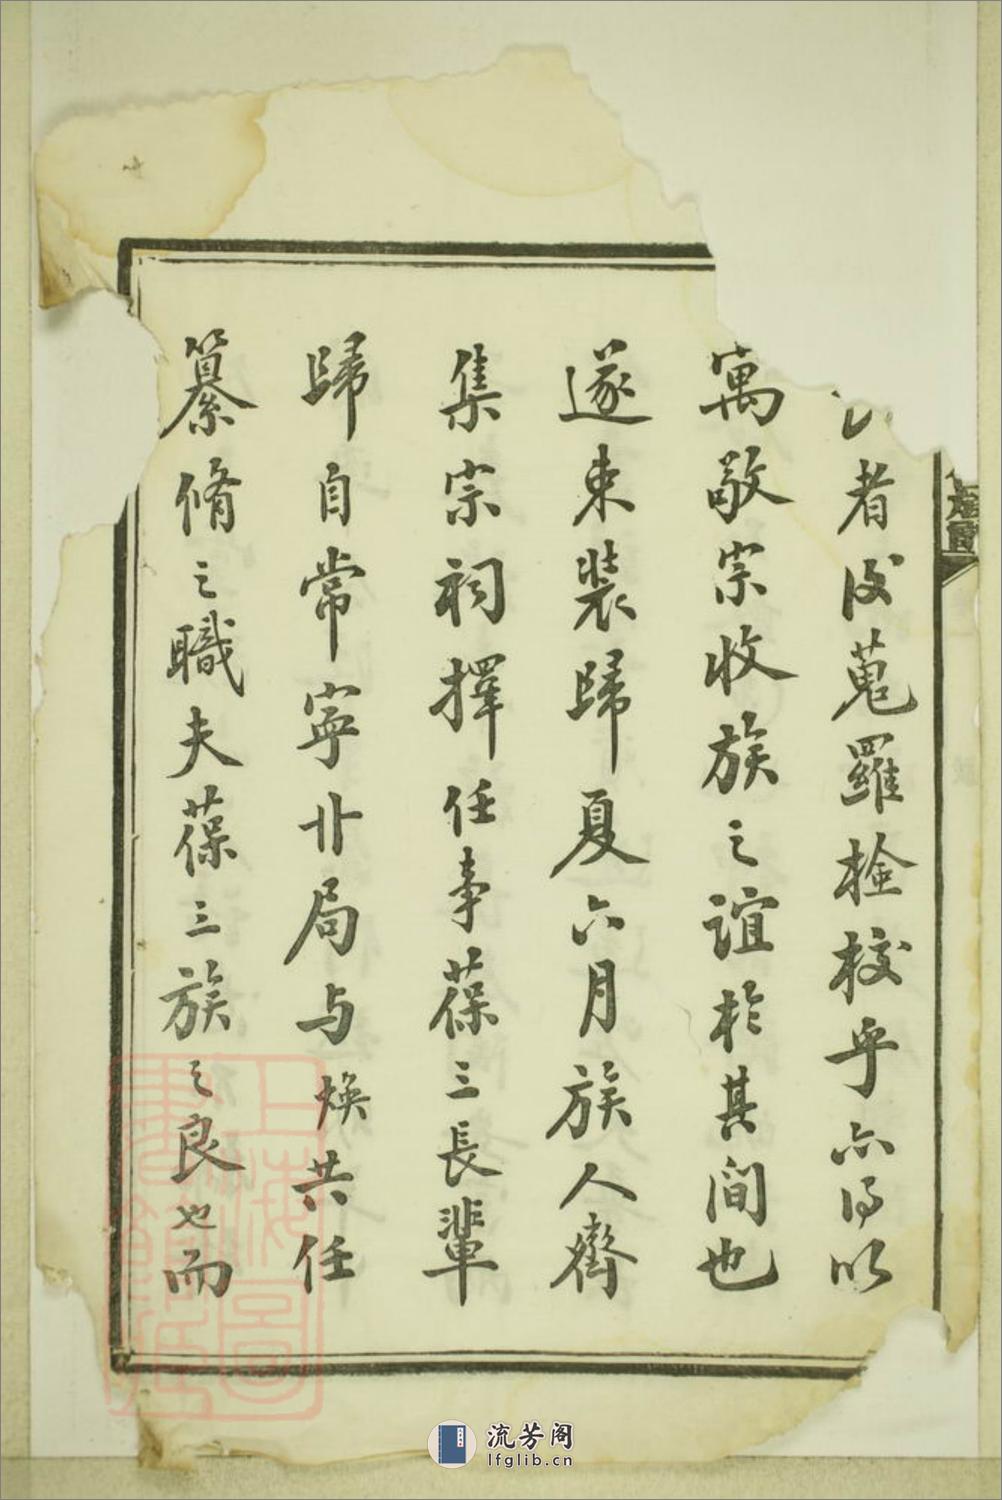 者後蒐羅檢校乎亦得以
寓敬宗收族之誼於其間也
遂束裝歸夏六月族人齊
集宗祠擇任事葆三長輩
歸自常寧廾局与煥共任
纂脩之職夫葆三族之良也而
上海圖書館藏
流芳阁
lfglib.cn